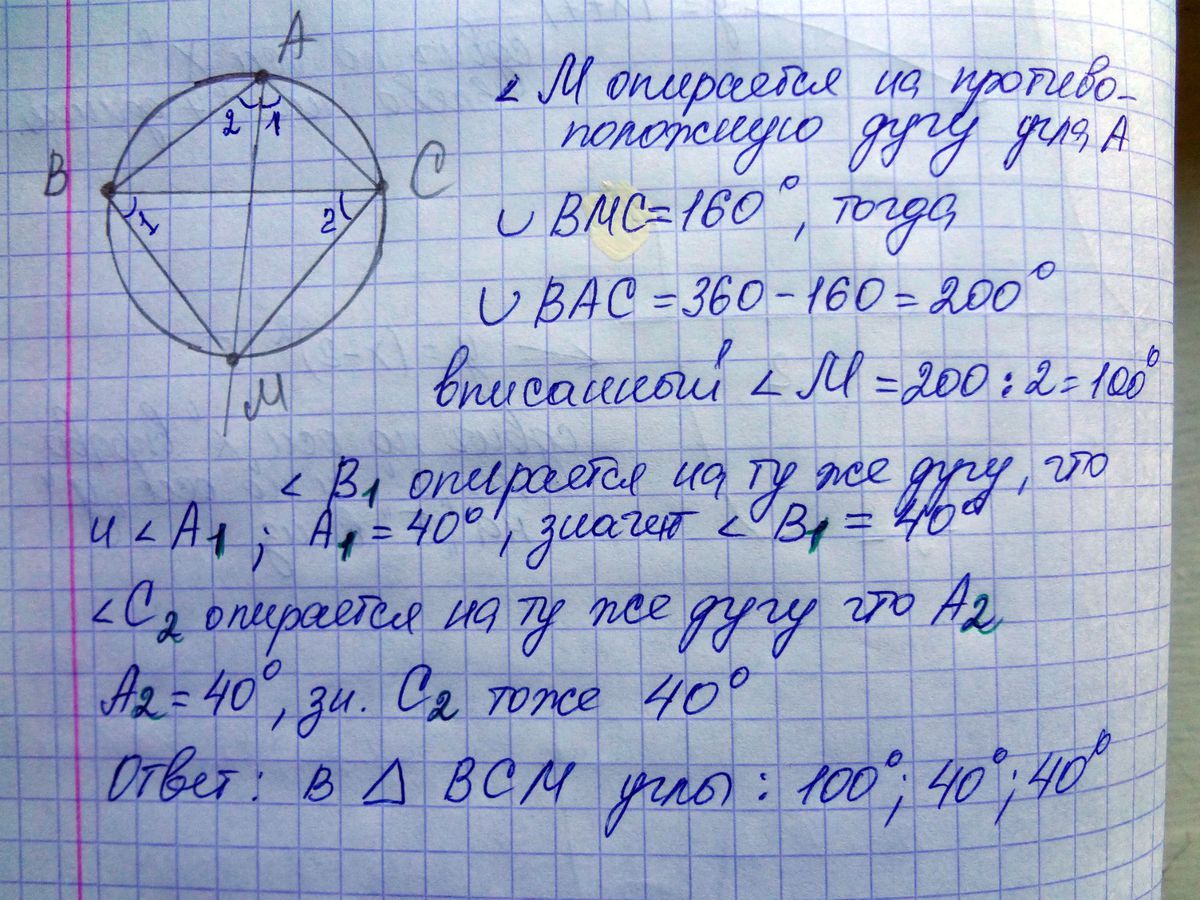 A
2 1
B
C
1
2
M
∠ M опирается на противо-
положную дугу угла A
∪ BMC = 160°, тогда
∪ BAC = 360 - 160 = 200°
вписанный ∠ M = 200 : 2 = 100°
∠ B1 опирается на ту же дугу, что
и ∠ A1 ; A1 = 40°, значит ∠ B1 = 40°
∠C2 опирается на ту же дугу что A2
A2 = 40°, зн. C2 тоже 40°
Ответ: в △ BCM углы : 100°; 40°; 40°